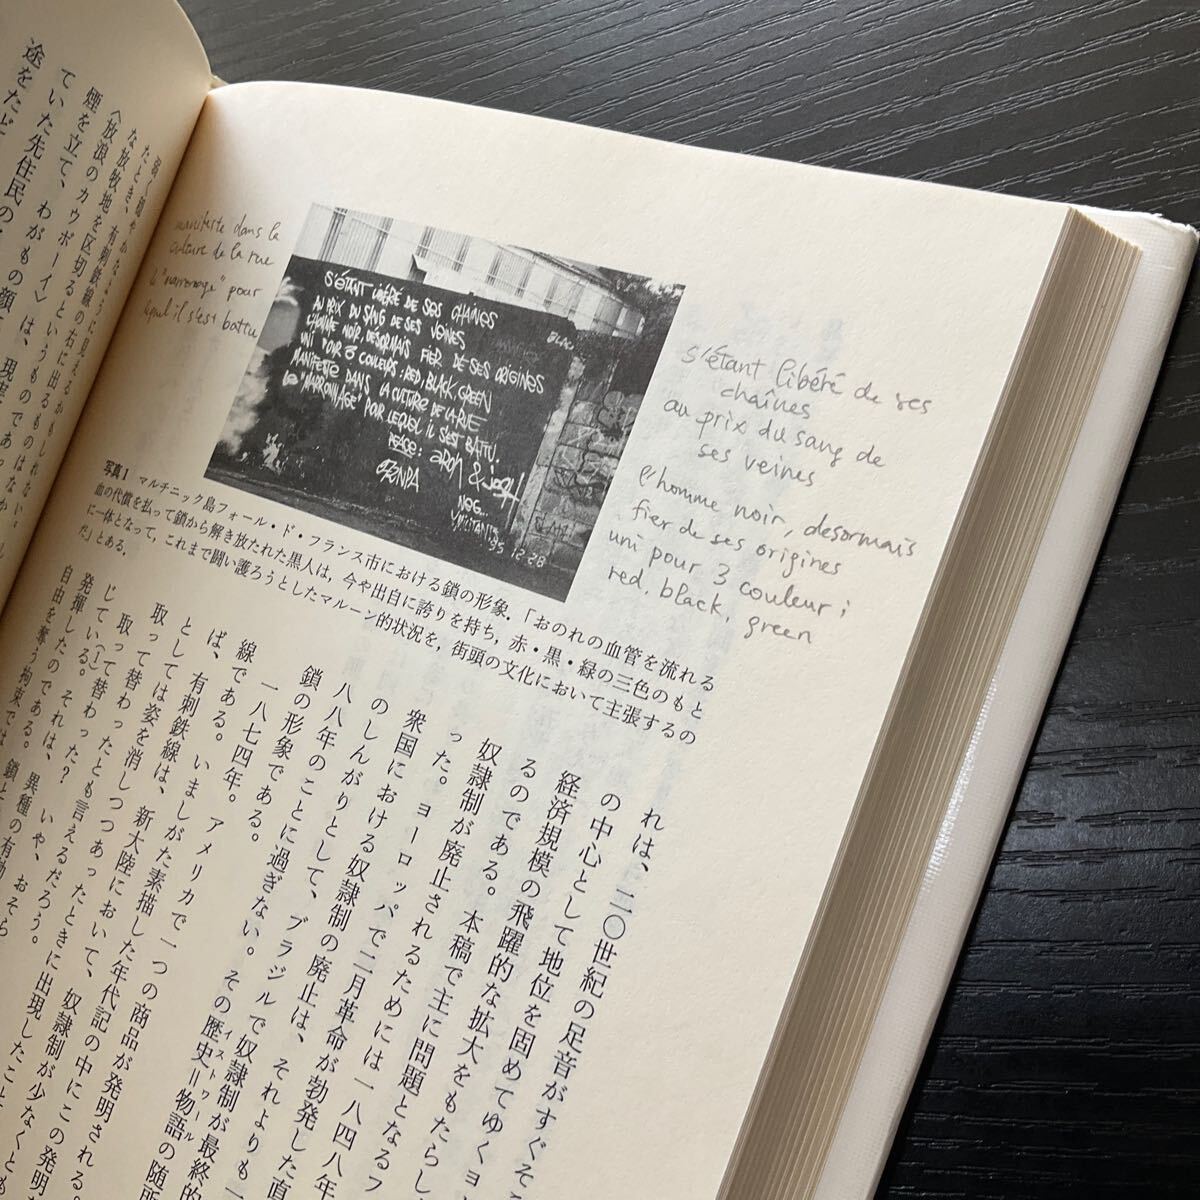 弱く穏やかな
たとき、有刺鉄線の右に出るものはない。
な放牧地を区切るというように見えるかもしれない
〈放浪のカウボーイ〉は、
煙を立て、わがもの顔
ていた先住民の
途をたど
manifeste dans la
culture de la rue
le "marronage" pour
lequel il s'est battu
S'ÉTANT LIBÉRÉ DE SES CHAÎNES
AU PRIX DU SANG DE SES VEINES
L'HOMME NOIR, DÉSORMAIS FIER DE SES ORIGINES
UNI POUR 3 COULEURS: RED, BLACK, GREEN
MANIFESTE DANS LA CULTURE DE LA RUE
LE "MARRONNAGE" POUR LEQUEL IL S'EST BATTU.
PEACE:
NOG...
95 12.28
s'étant libéré de ses
chaînes
au prix du sang de
ses veines
l'homme noir, desormais
fier de ses origines
uni pour 3 couleur;
red, black, green
写真1 マルチニック島フォール・ド・フランス市における鎖の形象.「おのれの血管を流れる
血の代償を払って鎖から解き放たれた黒人は,今や出自に誇りを持ち,赤・黒・緑の三色のもと
に一体となって,これまで闘い護ろうとしたマルーン的状況を,街頭の文化において主張するの
だ」とある.
れは、二〇世紀の足音がすぐそこ
の中心として地位を固めてゆくヨ
経済規模の飛躍的な拡大をもたらし
るのである。本稿で主に問題となるフ
奴隷制が廃止されるためには一八四八年
った。ヨーロッパで二月革命が勃発した直
衆国における奴隷制の廃止は、それよりも一
のしんがりとして、ブラジルで奴隷制が最終的
八八年のことに過ぎない。その歴史＝物語イストワールの随所
鎖の形象である。
一八七四年。アメリカで一つの商品が発明される。
線である。いましがた素描した年代記の中にこの発明
ば、有刺鉄線は、新大陸において、奴隷制が少なくとも
としては姿を消しつつあったときに出現したこと
取って替わったとも言えるだろう。
取って替わった? いや、おそら
じている(1)。それは、異種の有動
発揮したのである。鎖と
自由を奪う拘束では